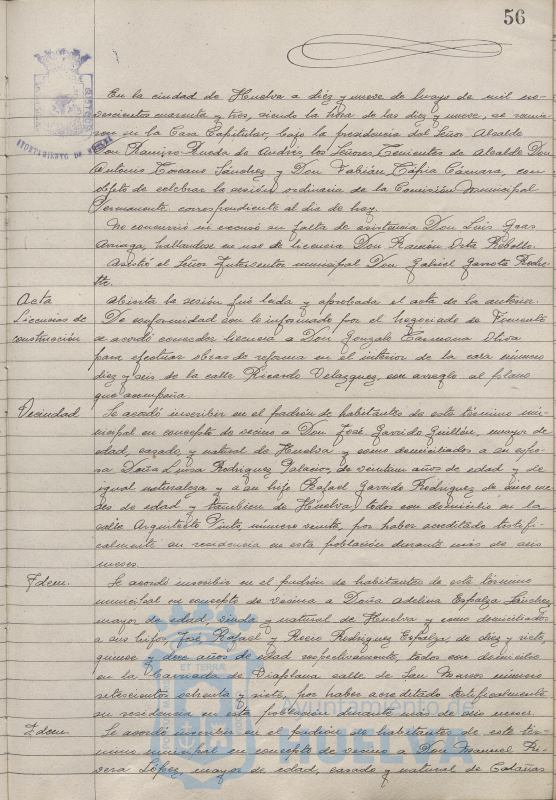 56
En la ciudad de Huelva a diez y nueve de mayo de mil no-
vecientos cuarenta y tres, siendo la hora de las diez y nueve, se reunie-
ron en la Casa Capitular, bajo la presidencia del Señor Alcalde
Don Ramiro Rueda de Andrés, los Señores Tenientes de Alcalde Don
Antonio Toscano Sánchez y Don Fabián Tapia Cámara, con
objeto de celebrar la sesión ordinaria de la Comisión Municipal
Permanente correspondiente al día de hoy.
No concurrió ni excusó su falta de asistencia Don Luis
hallándose en uso de licencia Don Ramón Orta Rebollo.
Asistió el Señor Interventor municipal Don Gabriel Garrote
Acta
Abierta la sesión fué leida y aprobada el acta de la anterior.
Licencias de
De conformidad con lo informado por el Negociado de Fomento
construcción
se acordó conceder licencia a Don Gonzalo Carmona
para efectuar obras de reforma en el interior de la casa número
diez y seis de la calle Ricardo Velazquez, con arreglo al plano
que acompaña.
Vecindad
Se acordó inscribir en el padrón de habitantes de este término mu-
nicipal en concepto de vecino a Don José Garrido Guillén, mayor de
edad, casado, y natural de Huelva y como domiciliados a su espo-
sa Doña Luisa Rodriguez Palacios, de años de edad y de
igual naturaleza y a su hijo Rafael Garrido Rodriguez de once me-
ses de edad y tambien de Huelva, todos con domicilio en la
calle Arquitecto Pinto, número veinte, por haber acreditado testifi-
calmente su residencia en esta población durante más de seis
meses.
Idem.
Se acordó inscribir en el padrón de habitantes de este término
municipal en concepto de vecina a Doña Adelina Espalza Sánchez,
mayor de edad, viuda y natural de Huelva y como domiciliados
a sus hijos, José Rafael y Rocio Rodriguez Espalza, de diez y siete,
quince y doce años de edad respectivamente, todos con domicilio
en la Barriada de Viaplana calle de San Marcos número
setecientos ochenta y siete, por haber acreditado testificalmente
su residencia en esta población durante más de seis meses.
Idem.
Se acordó inscribir en el padrón de habitantes de este tér-
mino municipal en concepto de vecino a Don Manuel Ri-
vera López, mayor de edad, casado y natural de Calañas
AYUNTAMIENTO DE HUELVA
ET TERRA
Ayuntamiento de
HUELVA